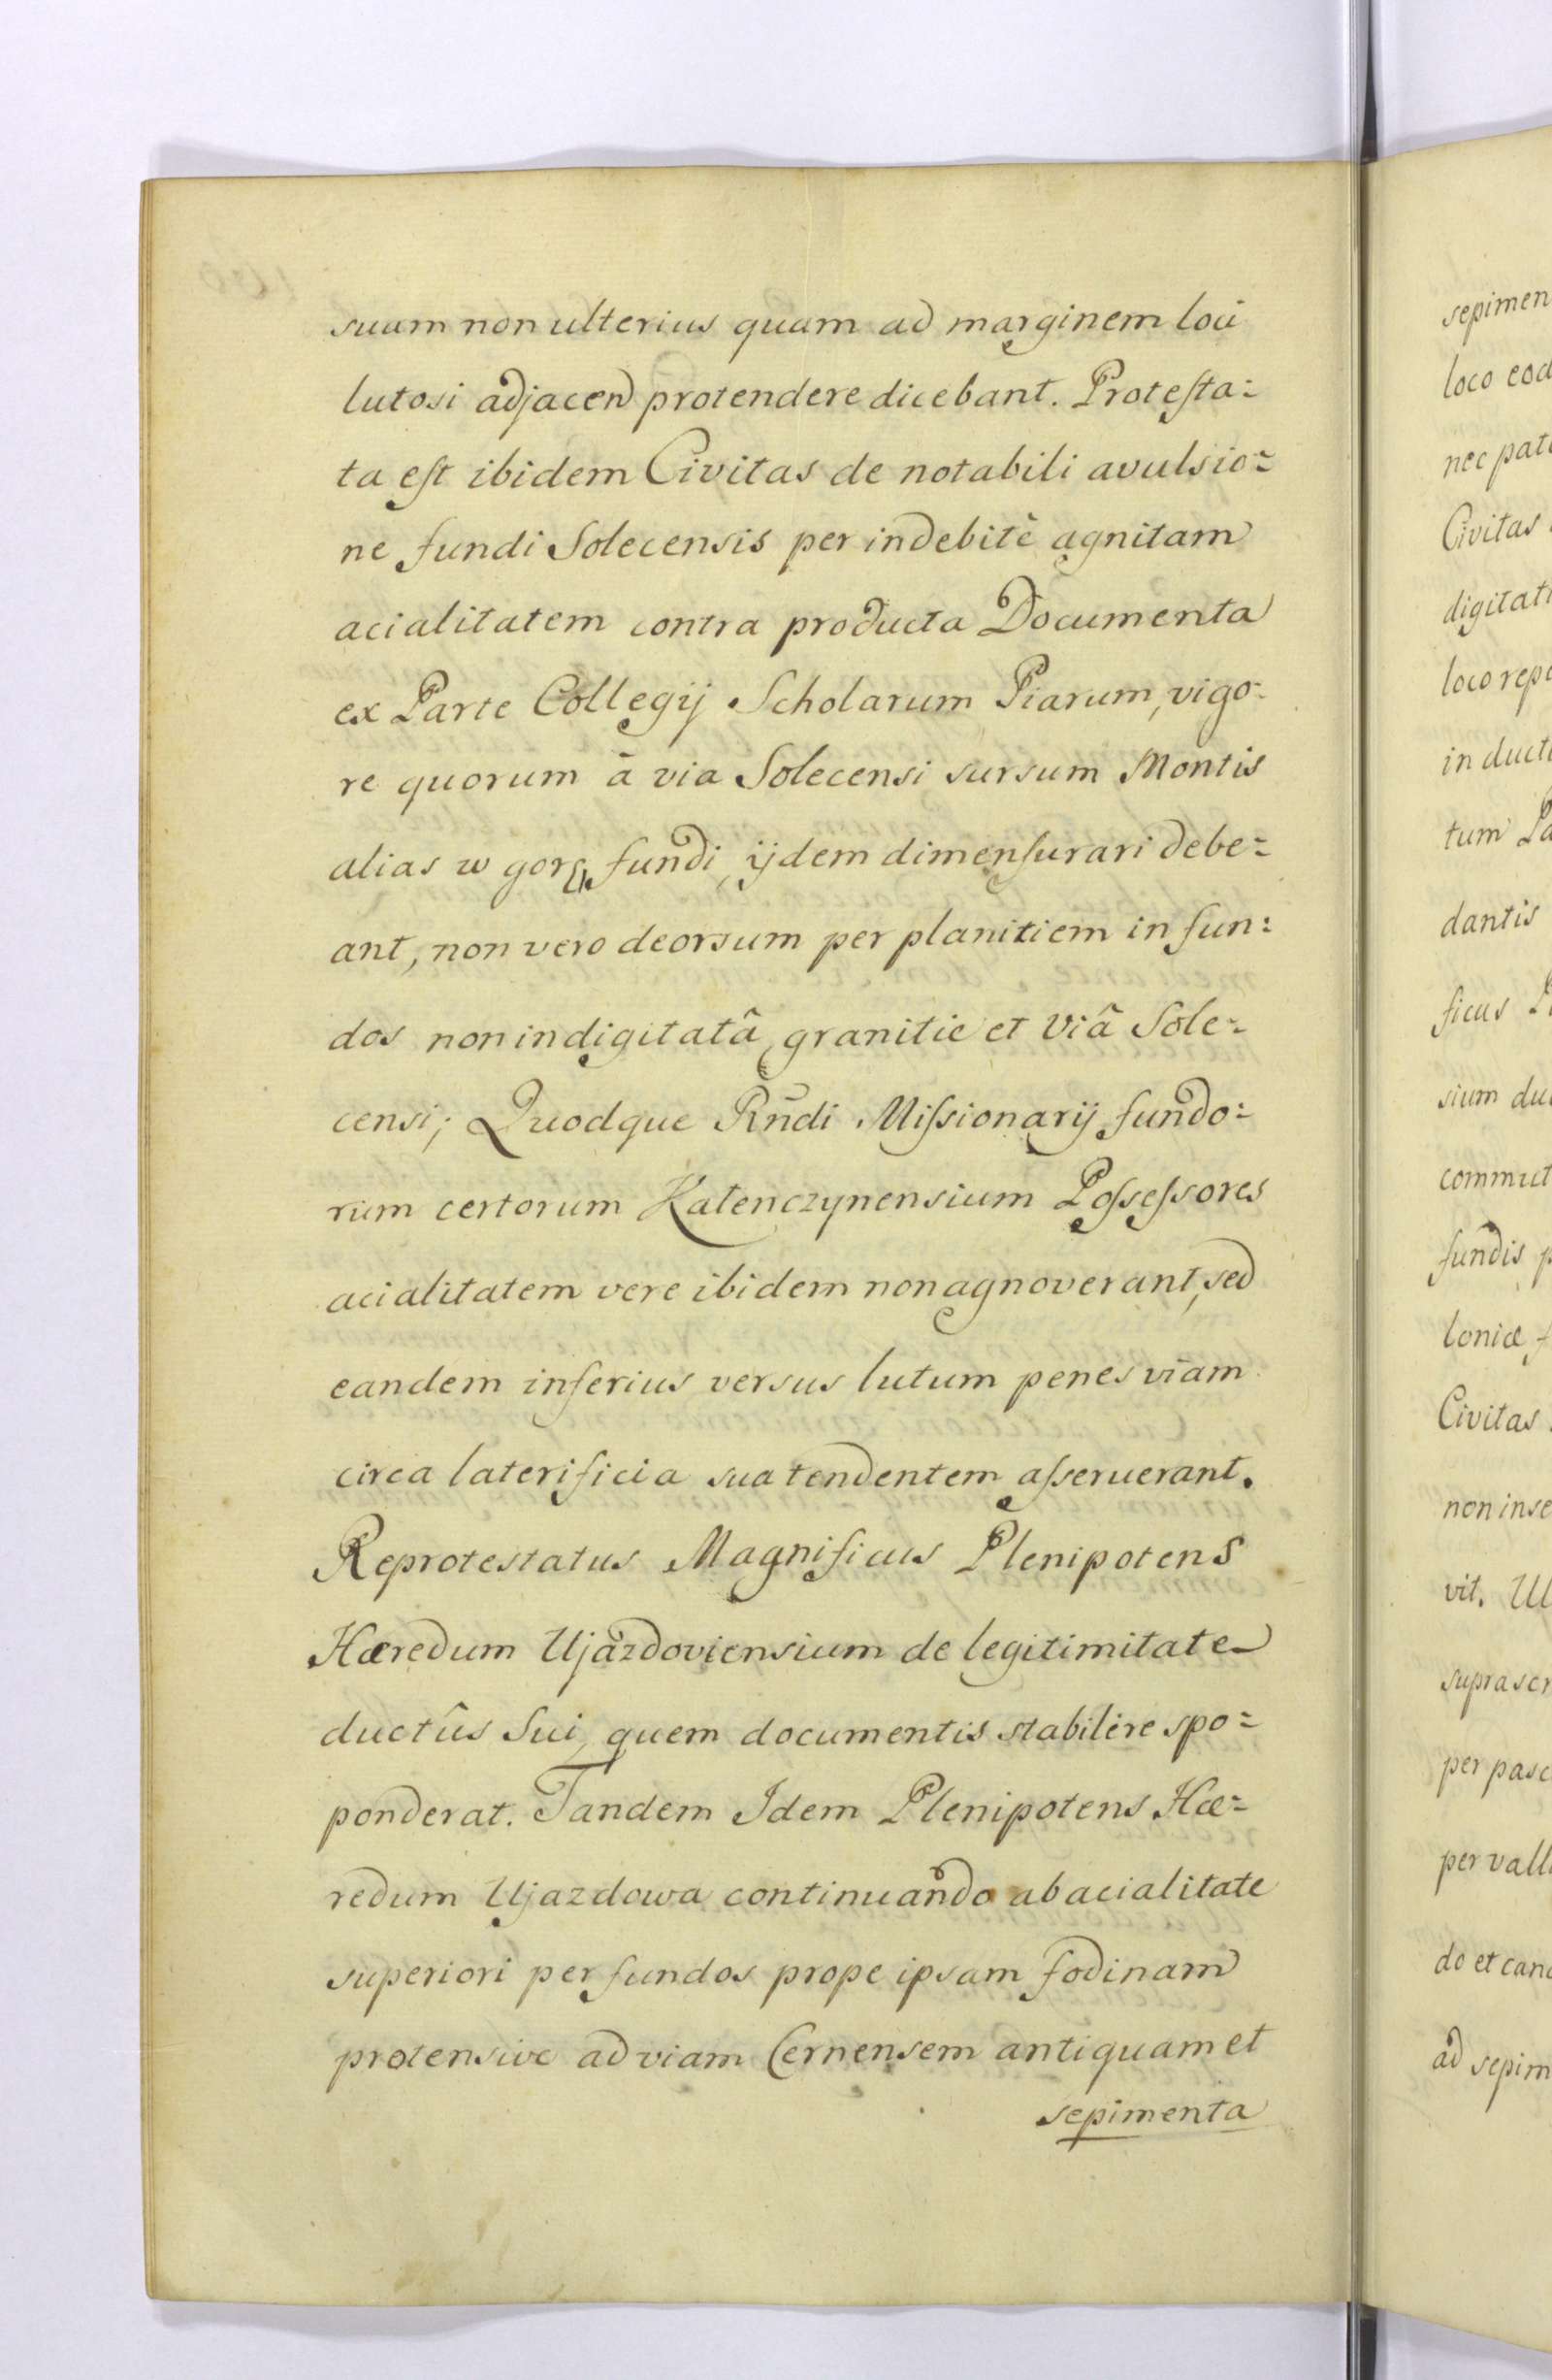 suam non ulterius quam ad marginem loci
lutosi adjacen protendere dicebant. Protesta-
ta est ibidem Civitas de notabili avulsio-
ne fundi Solecensis per indebitè agnitam
acialitatem contra producta Documenta
ex Parte Collegij Scholarum Piarum, vigo-
re quorum à via Solecensi sursum Montis
alias w gorę fundi, ijdem dimensurari debe-
ant, non vero deorsum per planitiem in fun-
dos non indigitatâ granitie et Viâ Sole-
censi; Quodque Rñdi Missionarij fundo-
rum certorum Kałenczynensium Possessores
acialitatem vere ibidem non agnoverant, sed
eandem inferius versus lutum penes viam
circa laterificia sua tendentem asseruerant.
Reprotestatus Magnificus Plenipotens
Hæredum Ujazdoviensium de legitimitate
ductûs Sui, quem documentis stabilire spo-
ponderat. Tandem Idem Plenipotens Hæ-
redum Ujazdowa continuando ab acialitate
superiori per fundos prope ipsam fodinam
protensive ad viam Cernensem antiquam et
sepimenta
sepimen
loco eod
nec pat
Civitas
digitat
loco rep
in duct
tum Pa
dantis
ficus P
sium du
commut
fundis p
loniæ f
Civitas
non inse
vit. Ul
suprascr
per pasc
per vall
do et can
ad sepim